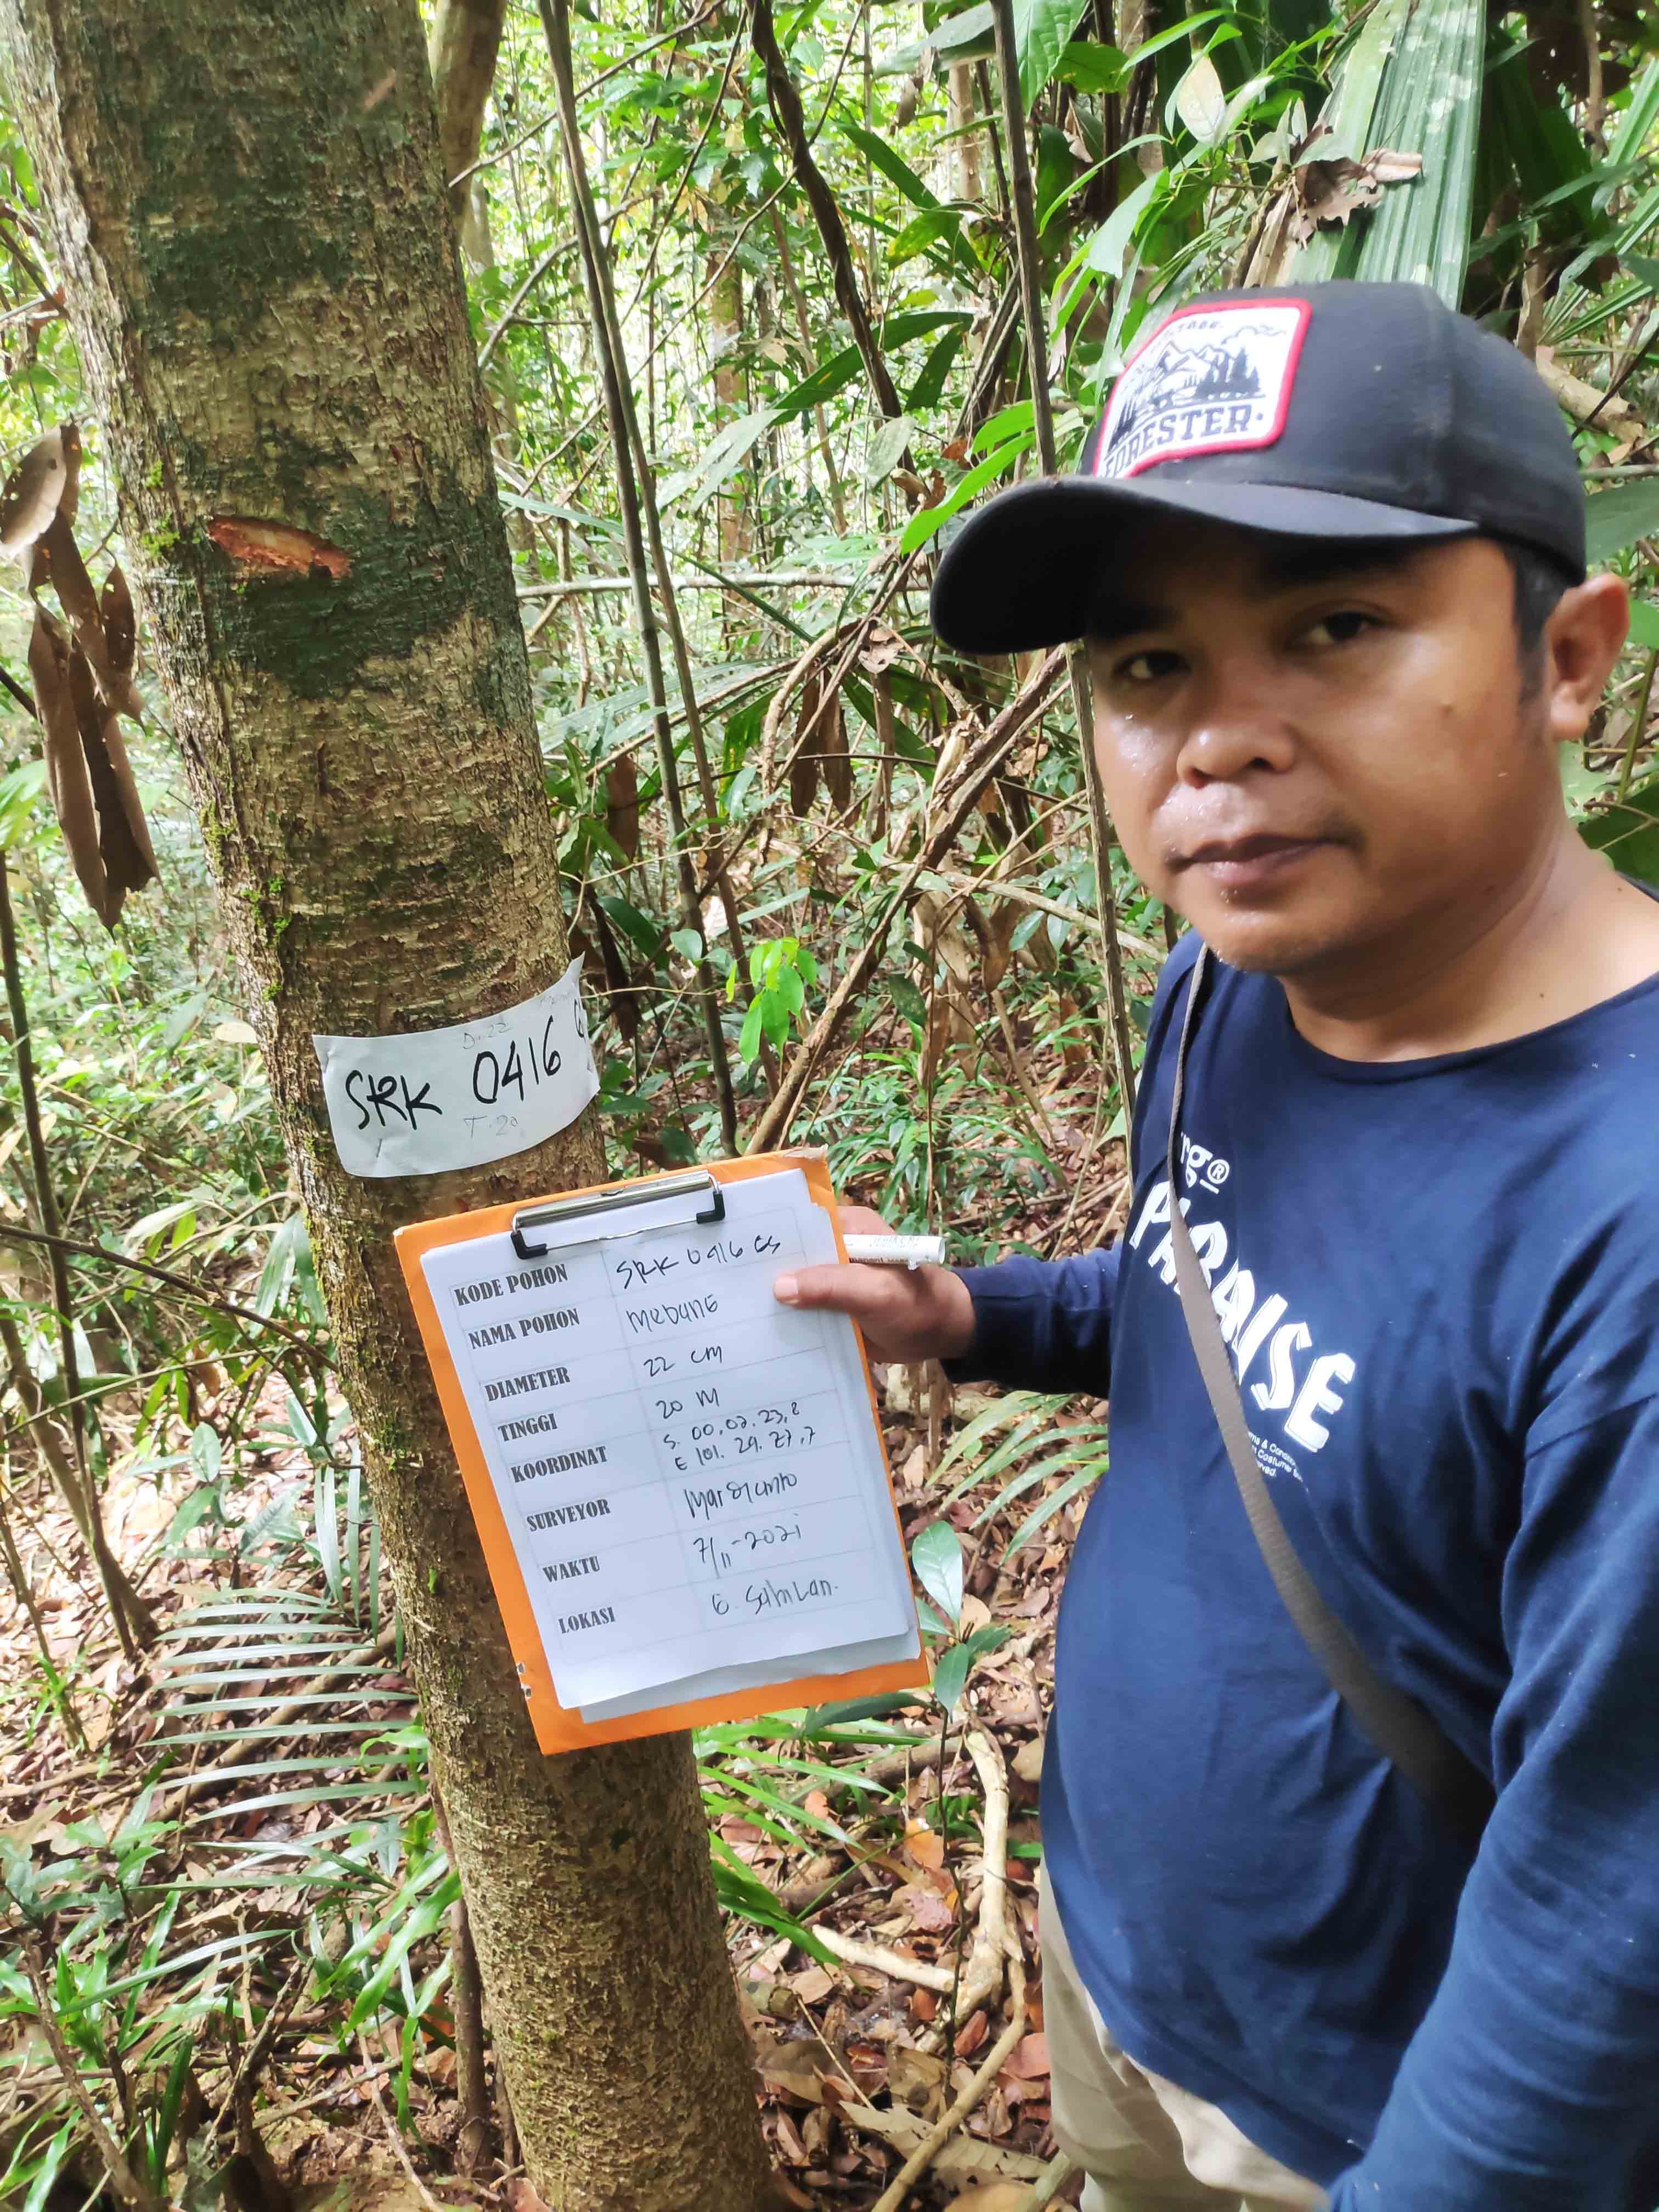 FORESTER
D. 22
SRK 0416 GS
T. 20
KODE POHON SRK 0416 GS
NAMA POHON mebung
DIAMETER 22 cm
TINGGI 20 M
KOORDINAT S. 00. 02. 23,8
E 101. 29. 27,7
SURVEYOR Mardianto
WAKTU 7/11-2021
LOKASI
rg®
PARAISE